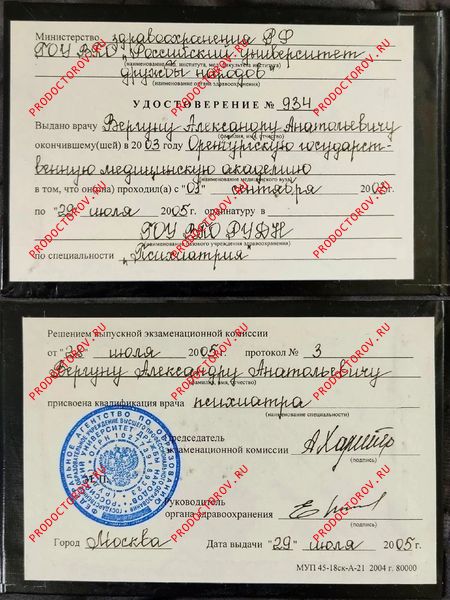 Министерство здравоохранения РФ
ГОУ ВПО "Российский университет
(наименование института, медфакультета института)
дружбы народов"
(наименование органа здравоохранения)
УДОСТОВЕРЕНИЕ № 934
Выдано врачу Вергуну Александру Анатольевичу
(фамилия, имя, отчество)
окончившему(шей) в 2003 году Оренбургскую государст-
венную медицинскую академию
(наименование медицинского вуза)
в том, что он(она) проходил(а) с "01" сентября 2003 г.
по "29" июля 2005 г. ординатуру в
ГОУ ВПО РУДН
(наименование учреждения здравоохранения)
по специальности "Психиатрия"
Решением выпускной экзаменационной комиссии
от "28" июля 2005 г. протокол № 3
Вергуну Александру Анатольевичу
(фамилия, имя, отчество)
присвоена квалификация врача психиатра
(наименование специальности)
Председатель
экзаменационной комиссии
(подпись)
Руководитель
органа здравоохранения
(подпись)
ФЕДЕРАЛЬНОЕ АГЕНТСТВО ПО ОБРАЗОВАНИЮ
Город Москва Дата выдачи "29" июля 2005 г.
МУП 45-18ск-А-21 2004 г. 80000
PRODOCTOROV.RU